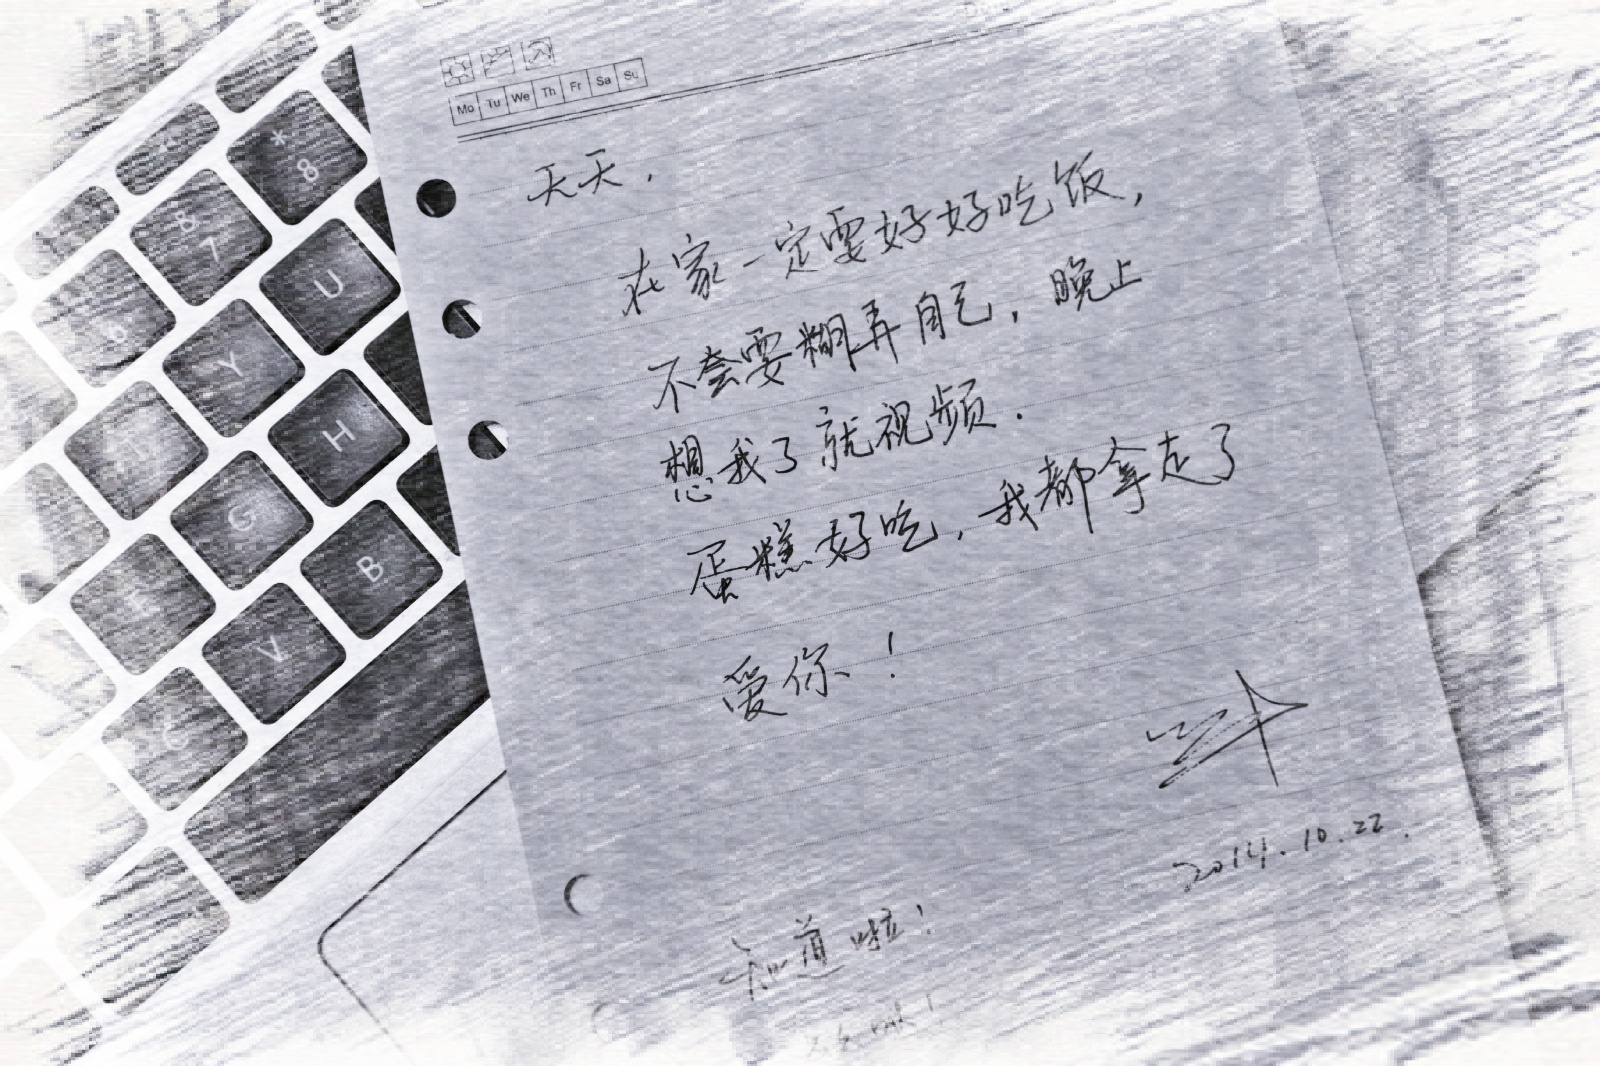 Mo Tu We Th Fr Sa Su
天天,
在家一定要好好吃饭,
不会要糊弄自己,晚上
想我了就视频.
蛋糕好吃,我都拿走了
爱你!
2014.10.22.
知道啦!
*
8
&
7
6
U
Y
H
G
B
V
C